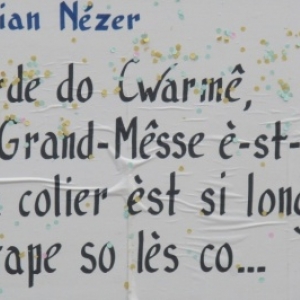 ian Nézer
rde do Cwarmê,
Grand-Mêsse è-st-
colier èst si long
rape so lès co...